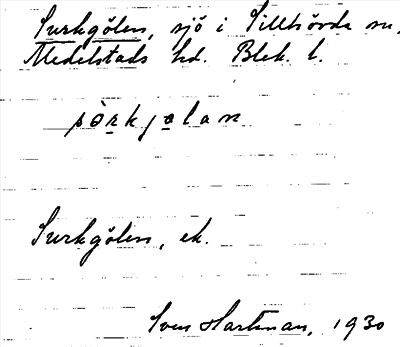 Surkgölen, sjö i Tillhövda sn,
Medelstads hd. Blek. l.
sòrkjølan
Surkgölen, ek.
Sven Hartman, 1930